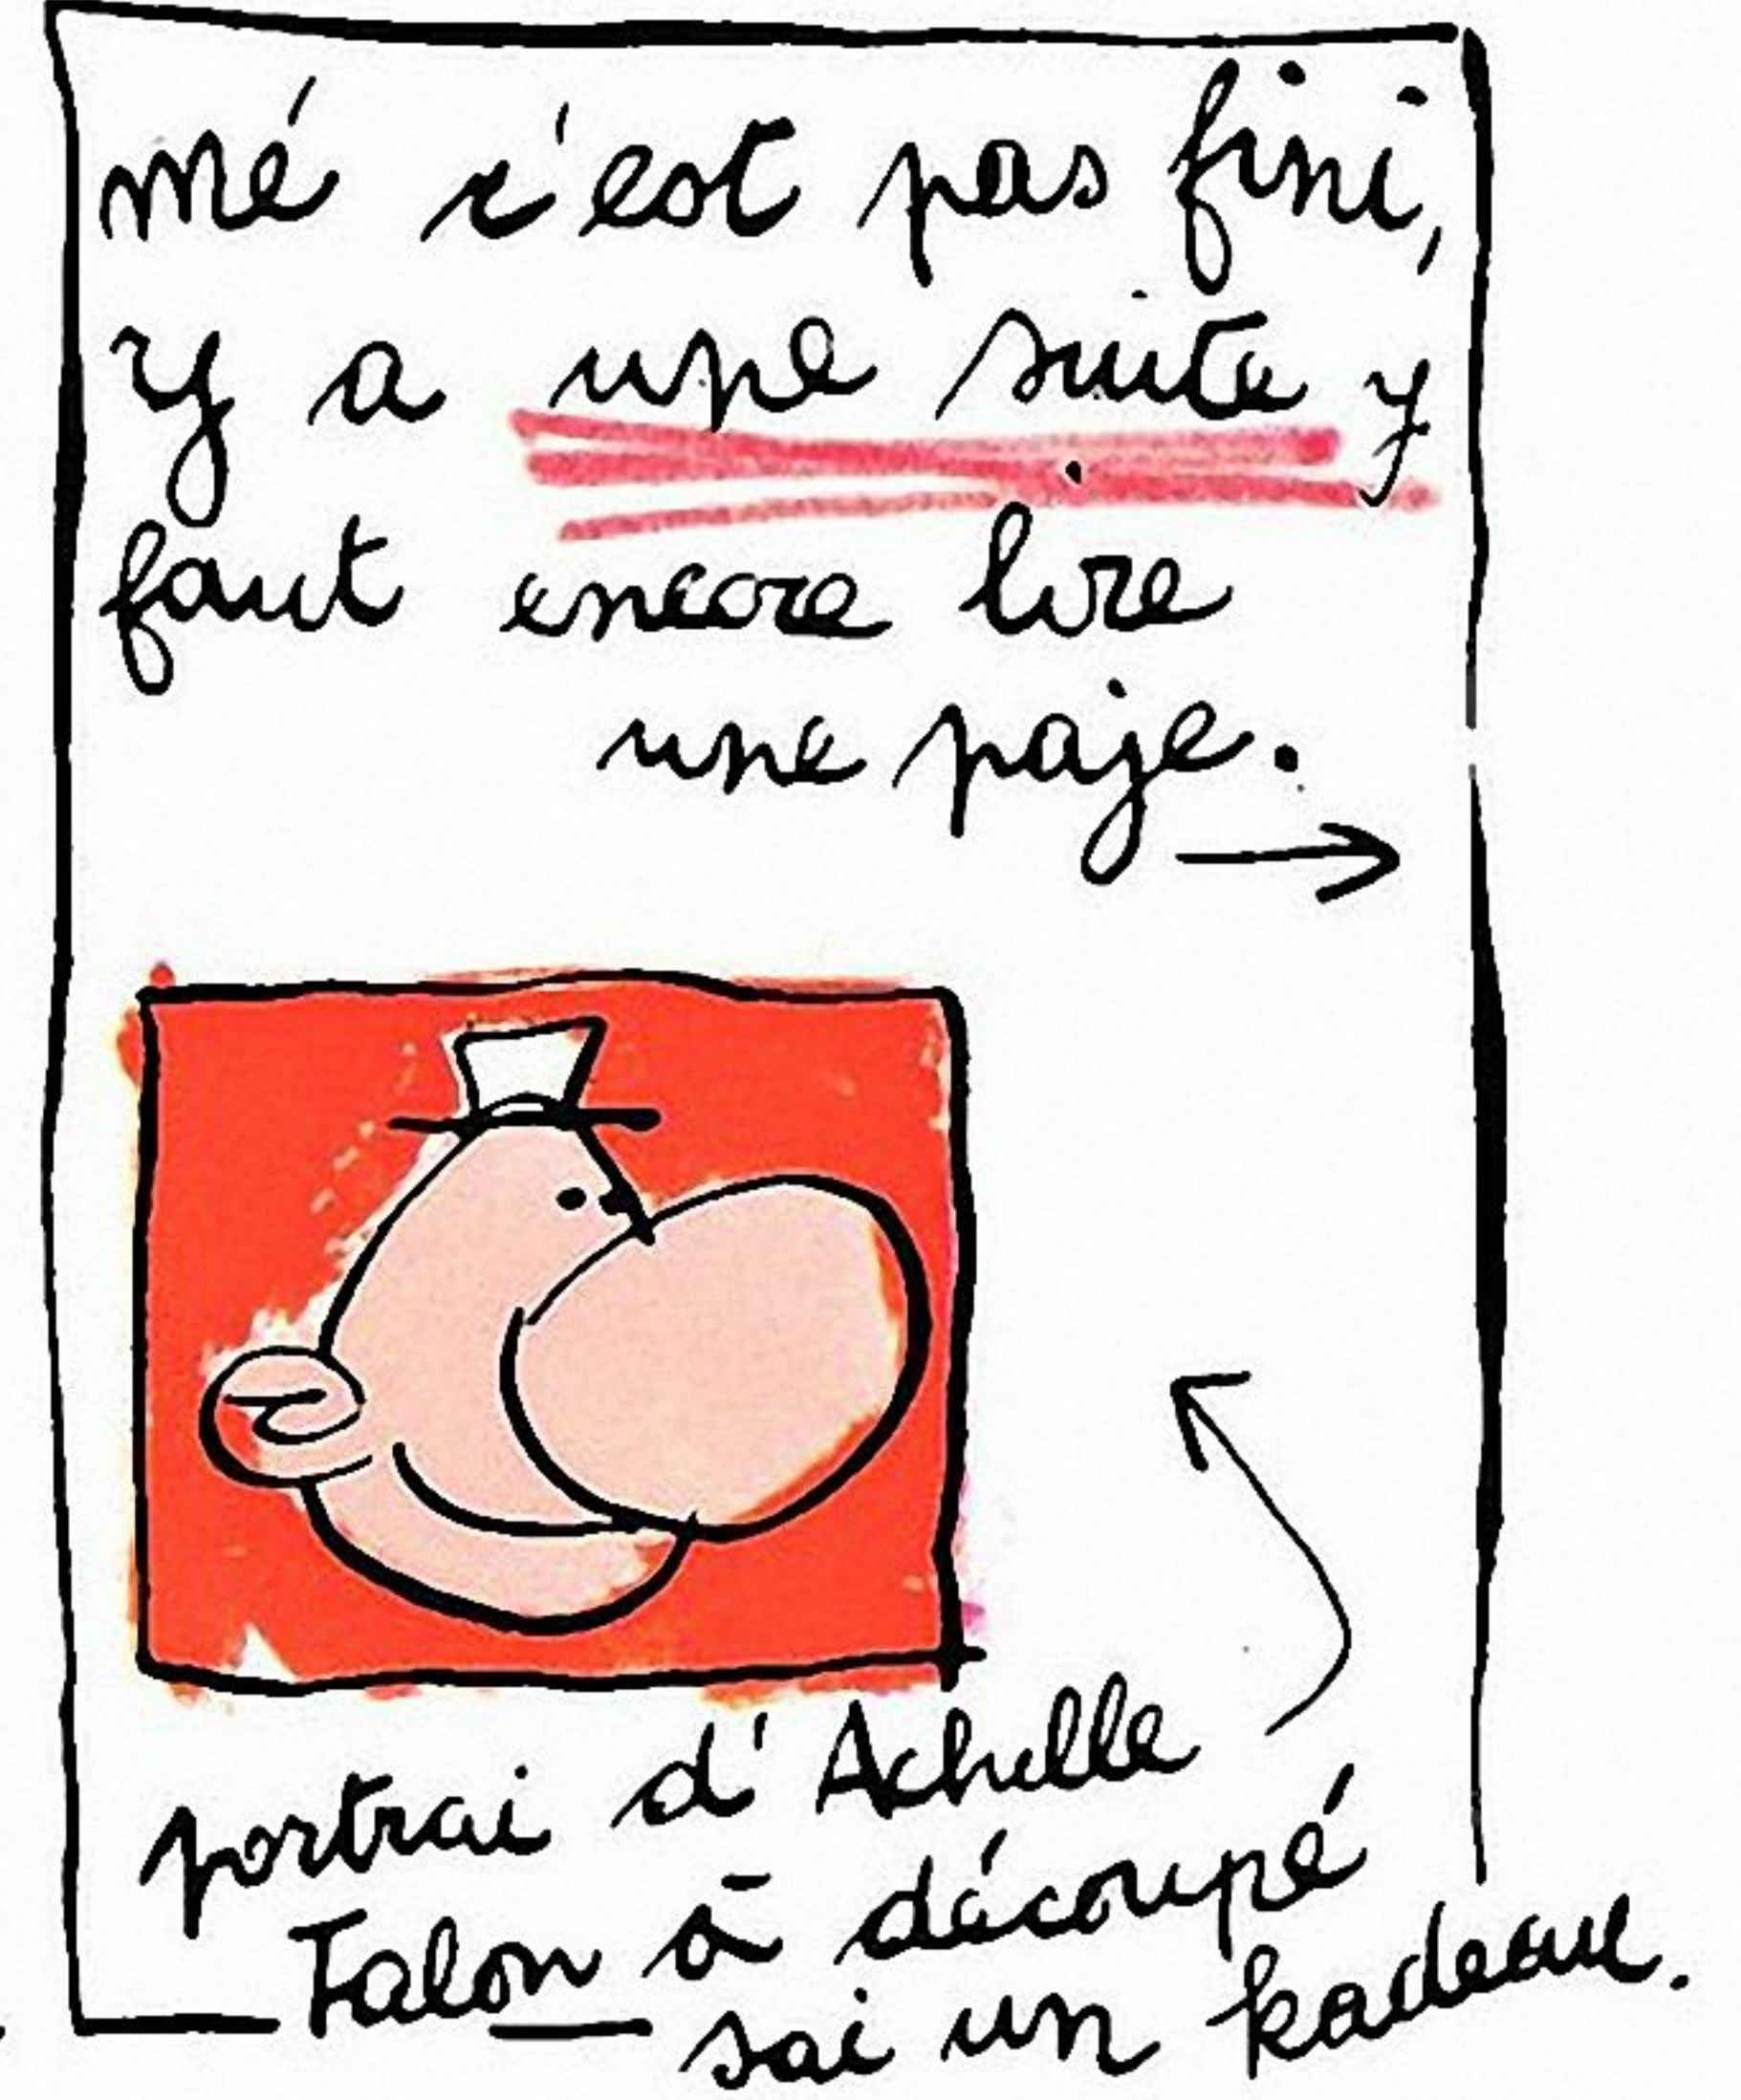 mé c'est pas fini,
y a une suite y
faut encore lire
une paje.
portrai d'Achille
Talon à découpé
sai un kadeau.